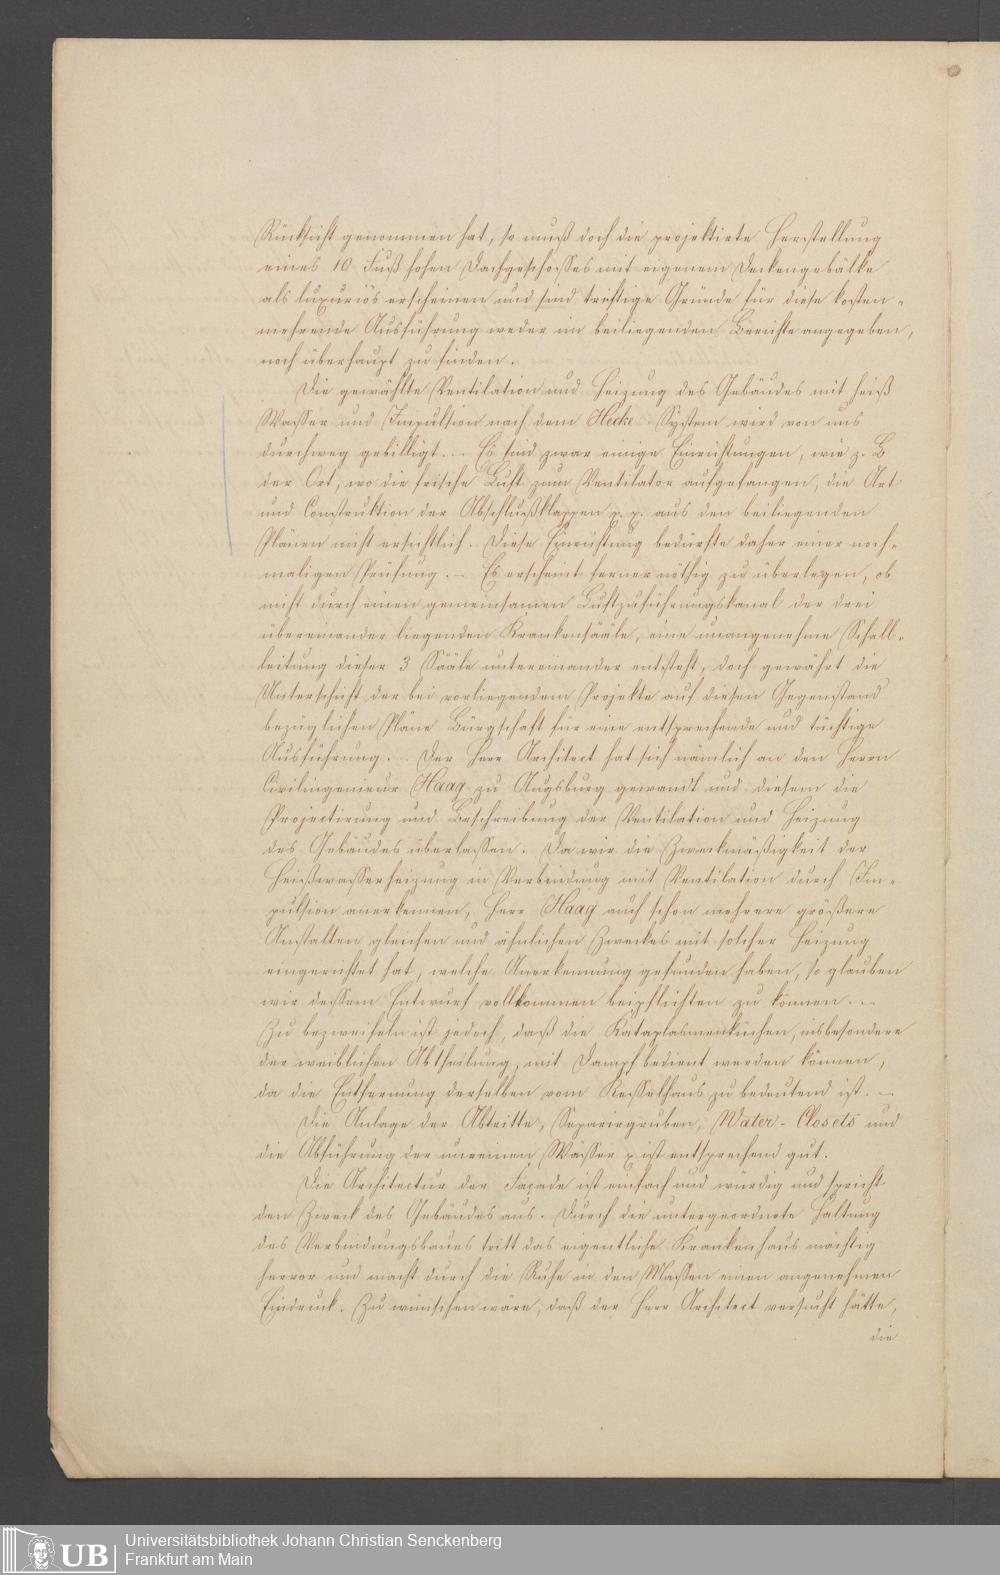 Rücksicht genommen hat, so muß doch die projektirte Herstellung
eines 10 Fuß hohen Dachgeschosses mit eigenem Deckengebälke
als luxuriös erscheinen und sind triftige Gründe für diese kosten-
mehrende Ausführung weder im beiliegenden Berichte angegeben,
noch überhaupt zu finden.
Die gewählte Ventilation und Heizung des Gebäudes mit heiß
Wasser und Impulsion nach dem Hecke-System wird von uns
durchweg gebilligt. – Es sind zwar einige Einrichtungen, wie z. B
der Ort, wo die frische Luft zum Ventilator aufgefangen, die Art
und Construktion der Abschlußklappen p. p. aus den beiliegenden
Plänen nicht ersichtlich. Diese Einrichtung bedürfte daher einer noch-
maligen Prüfung. – Es erscheint ferner nöthig zu überlegen, ob
nicht durch einen gemeinsamen Luftzuführungskanal der drei
übereinander liegenden Krankensääle, eine unangenehme Schall-
leitung dieser 3 Sääle untereinander entsteht, doch gewährt die
Unterschift der bei vorliegendem Projekte auf diesen Gegenstand
bezüglichen Pläne Bürgschaft für eine entsprechende und tüchtige
Ausführung. – Der Herr Architect hat sich nämlich an den Herrn
Civilingenieur Haag zu Augsburg gewandt und diesem die
Projectirung und Beschreibung der Ventilation und Heizung
des Gebäudes überlassen. Da wir die Zweckmäßigkeit der
Heißwasserheizung in Verbindung mit Ventilation durch Im-
pulsion anerkennen, Herr Haag auch schon mehrere größere
Anstalten gleichen und ähnlichen Zweckes mit solcher Heizung
eingerichtet hat, welche Anerkennung gefunden haben, so glauben
wir dessem Entwurf vollkommen beipflichten zu können. –
Zu bezweifeln ist jedoch, daß die Kataplasmenküchen, insbesondere
der weiblichen Abtheilung, mit Dampf bedient werden können,
da die Entfernung derselben vom Kesselhaus zu bedeutend ist. –
Die Anlage der Abtritte, Separirgruben, Water-Closets und
die Abführung der unreinen Wässer p ist entsprechend gut.
Die Architectur der Façade ist einfach und würdig und spricht
den Zweck des Gebäudes aus. Durch die untergeordnete Haltung
des Verbindungsbaues tritt das eigentliche Krankenhaus mächtig
hervor und macht durch die Ruhe in den Massen einen angenehmen
Eindruck. Zu wünschen wäre, daß der Herr Architect versucht hätte,
die
UB
Universitätsbibliothek Johann Christian Senckenberg
Frankfurt am Main